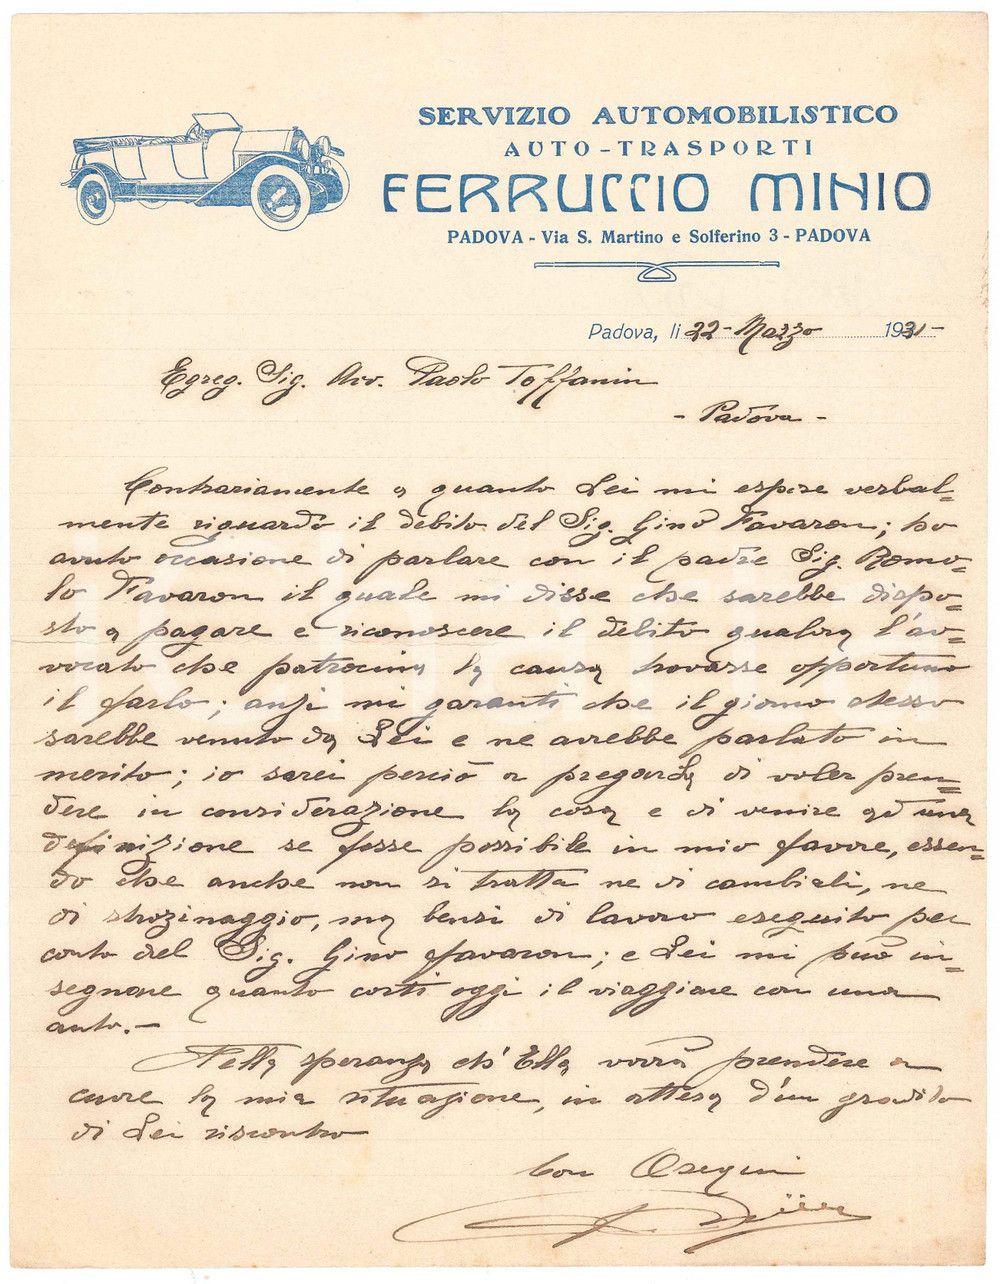 SERVIZIO AUTOMOBILISTICO
AUTO-TRASPORTI
FERRUCCIO MINIO
PADOVA - Via S. Martino e Solferino 3 - PADOVA
Padova, li 22 - Marzo 1931 -
Egreg. Sig. Avv. Paolo Toffanin
- Padova -
Contrariamente a quanto Lei mi espose verbal=
mente riguardo il debito del Sig. Gino Favaron; ho
avuto occasione di parlare con il padre Sig. Romo=
lo Favaron il quale mi disse che sarebbe dispo=
sto a pagare e riconoscere il debito qualora l'av=
vocato che patrocina la causa trovasse opportuno
il farlo; anzi mi garantì che il giorno stesso
sarebbe venuto da Lei e ne avrebbe parlato in
merito; io sarei perciò a pregarLa di voler pren=
dere in considerazione la cosa e di venire ad una
definizione se fosse possibile in mio favore, essen=
do che anche non si tratta ne di cambiali, ne
di strozinaggio, ma bensì di lavoro eseguito per
conto del Sig. Gino Favaron; e Lei mi può in=
segnare quanto costi oggi il viaggiare con una
auto.-
Nella speranza ch'Ella vorrà prendere a
cuore la mia situazione, in attesa d'un gradito
di Lei riscontro
Con Osequi